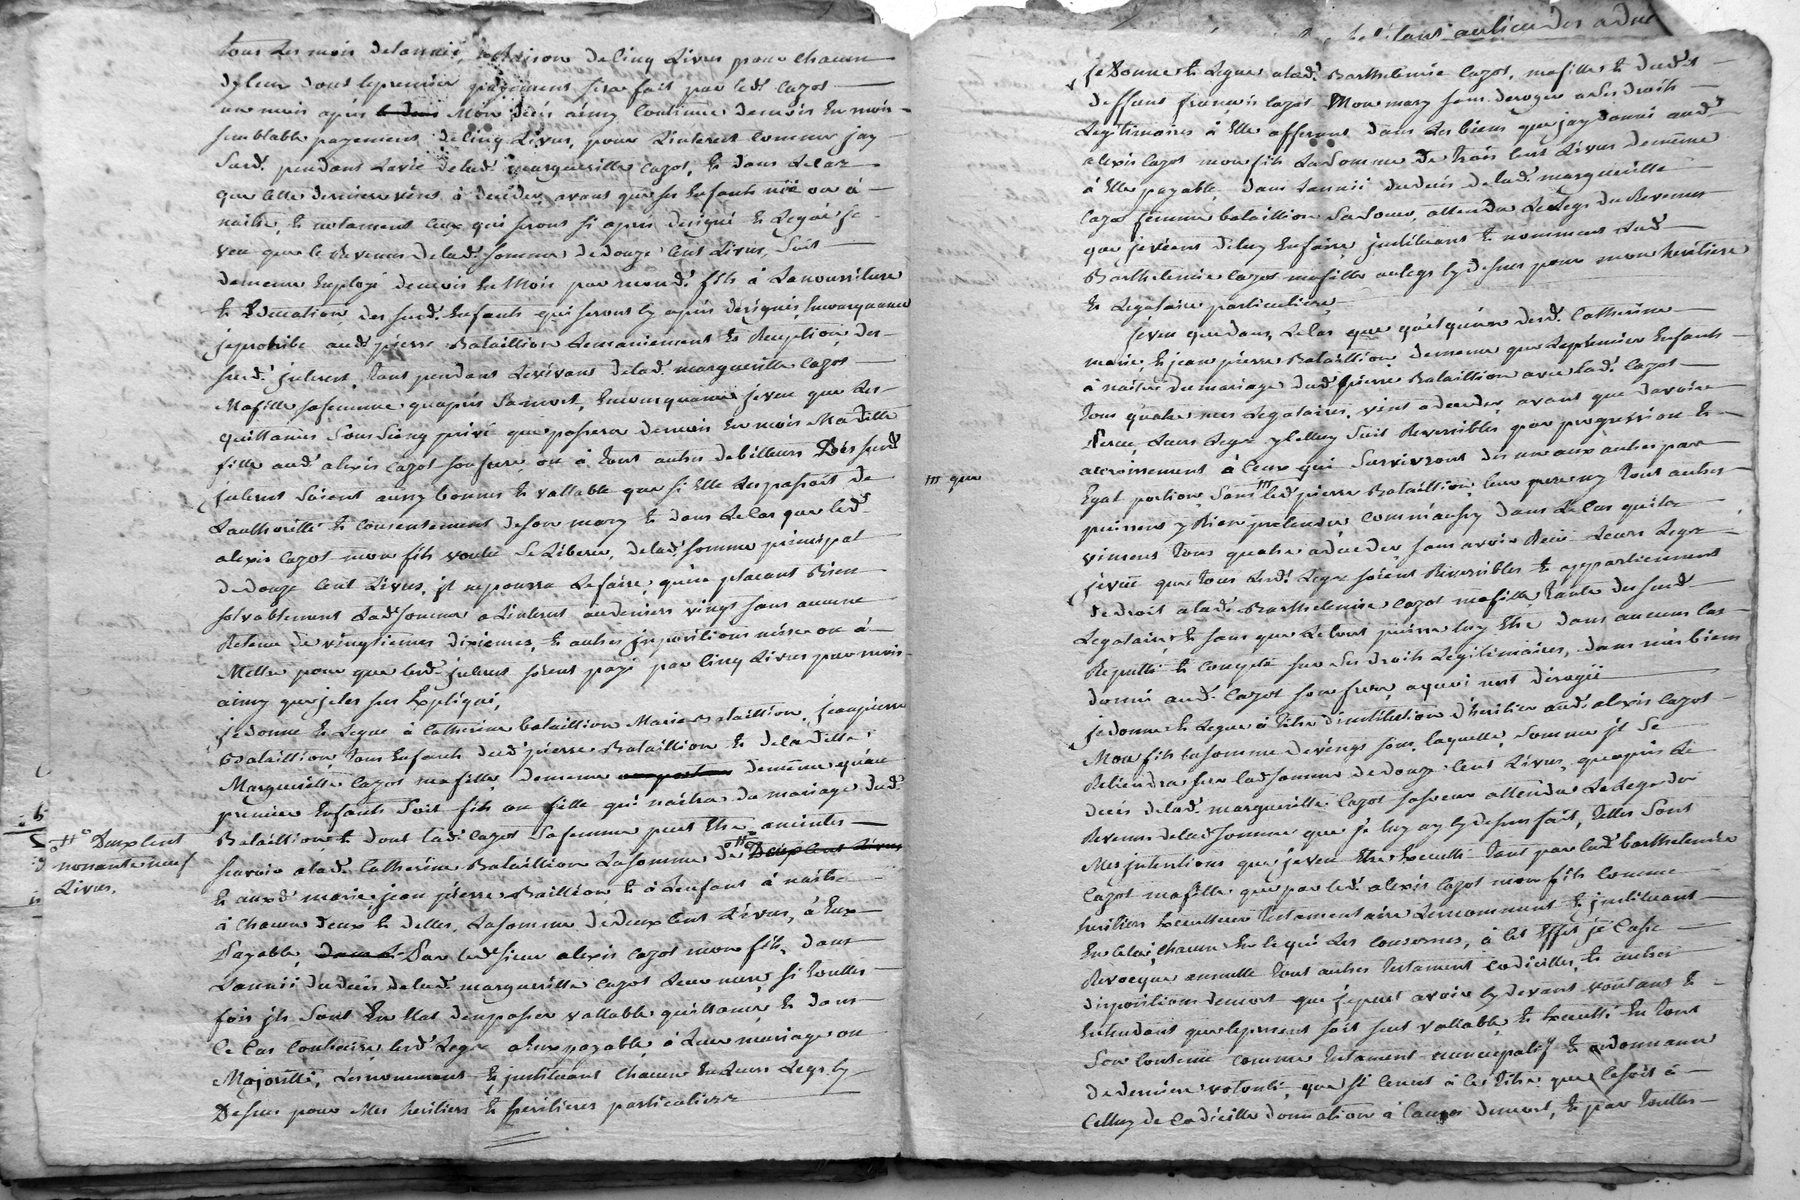 tous les mois de lannée, a Raison de cinq Livres pour chacun
dyleur dont le premier payement sera fait par ledt Cazot
un mois après Mon décès ainsy continue de mois en mois
semblable payement de cinq Livres, pour Linteret comme jay
Susd. pendant Lavie de lad. margueritte Cazot, & dans Le cas
que cette derniere vient à décéder avant que ses Enfants née ou à
naitre, & notament ceux qui seront si apres designé & Legué je
veu que le Revenu de lad. somme de douze Cent Livres, soit
dememe Employé de mois En Mois par mond. fils à La nourriture
& Education des susd. Enfants qui seront cy après designés, Enconsequance
je prohibe aud. pierre Bataillion Le maniement & Reception des
susd. jnterest, tant pendant Le vivant de lad. marguerite Cazot
Ma fille sa femme qu'après Sa mort, Enconsequance je veu que Les
quittances Sous seing privé que passera de mois En mois Ma ditte
fille aud. alexis Cazot son frere, ou à tout autres debitteurs Des susd.
jnterest Soient aussy bonnes & vallable que si Elle Les passoit de
Lauthorité & consentement de son mary & dans Le Cas que led.
alexis Cazot mon fils voulu Se Liberer, de lad. somme principal
de douze Cent Livres, jl ne pourra Le faire, qu'en placant Bien
solvablement Lad. somme a Linterest au deniers vingt sans aucune
Retenue de vingtiemes dixiemes, & autres jmpositions misse ou à
Mettre pour que lesd. jnterest soient payé par Cinq Livres par mois
ainsy que je les sus Expliqué,
je donne & Legue à Catherine bataillion Marie Bataillion, jean pierre
Bataillion, tous Enfants dud. pierre Bataillion & de la ditte
Margueritte Cazot ma fille, dememe demême qu'au
premier Enfants Soit fils ou fille qui naitra du mariage dud.
Bataillion & dont lad. Cazot Sa femme peut Etre enceinte
scavoir a lad. Catherine Bataillion La somme de Deux Cent Livres
& auxd. marie, jean pierre Bailliéon, & à Lenfant à naitre
à chacun deux & delles, La somme de deux Cent Livres, à Eux
Payable, Par led. sieur alexis Cazot mon fils, dans
Lannéé du décès de lad. margueritte Cazot Leur mere, si toutes
fois jls Sont En Etat d'en passer vallable quittance, & dans
Ce Cas Contraire lesd. Legs a Eux payable, à Leur mariage ou
Majorité, Les nommant & jnstituant Chacun En Leurs Legs cy
Dessus pour Mes heritiers & heritieres particuliere
#o Deux Cent
nonante neuf
Livres.
lieu des
je Donne & Legue a lad. Barthelemie Cazot, ma fille & dud.
deffunt francois Cazot Mon mary sans deroger a Ses droits
Legitimaires à Elle afferant dans Les biens que jay donné aud.
alexis Cazot mon fils La Somme de trois Cent Livres demême
à Elle payable dans Lannéé du décès de lad. marguerite
Cazot femme bataillion Sa Soeur, attendu Le Legs du Revenus
que je viens de luy En faire, jnstituant & nommant Lad.
Barthelemie Cazot ma fille au legs cy dessus pour mon heritiere
& Legataire particuliere,
je veu que dans, Le Cas que quelqu'un desd. Catherine
marie, & jean pierre Bataillion demême que Le premier Enfants
à naitre du mariage dud. pierre Bataillion avec Lad. Cazot
tous quatre mes Legataires, vient a déceder, avant que davoir
Perçu, Leurs Legs, Celluy Soit Reversibles par progression &
accroissement à Ceux qui Survivront des uns aux autres par
Egal portion, Sans m led. pierre Bataillion, leur pere ny tout autres
m que
puissent y Rien pretendre comm'aussy dans Le Cas qu'ils
vinsent tous quatre à déceder, sans avoir Reçu Leurs Legs
je veu que tous Lesd. Legs soient Reversibles & appartiennent
de droit a lad. Barthelemie Cazot ma fille, tante des susd.
Legataire, & sans que Le tout puisse luy Etre dans aucuns Cas
Reputté & Compté sur Ses droits Legitimaires, dans mes biens
donné aud. Cazot son frere, a quoi n'est dérogé
je donne & Legue à titre d'institution d'heritier aud. alexis Cazot
Mon fils La somme de vingt sous, laquelle somme jl Se
Retiendra sur lad. somme de douze Cent Livres, qu'après Le
décès de lad. marguerite Cazot sa soeur attendu Le Legs du
Revenu de lad. somme que je luy ay cy dessus fait, telles sont
Mes jntentions que je veu Etre Executté tant par lad. barthelemie
Cazot ma fille que par led. alexis Cazot mon fils comme
heritiers Executteur testamentaire Les nommant & jnstituant
En Cela Chacun En Ce qui Les Concernes, à Cet Effet je Casse
Revocque annulle tout autres testament codicilles, & autres
dispositions de mort que je peut avoir cy devant voulant &
Entendant que le present soit seul vallable & Executté En tout
Son Contenu comme testament nuncupatif & ordonnance
de derniere volonté, que si Ceneut à Ce titre que Ce soit à
Celluy de Codicille donnation à Cause de mort, & par toutes